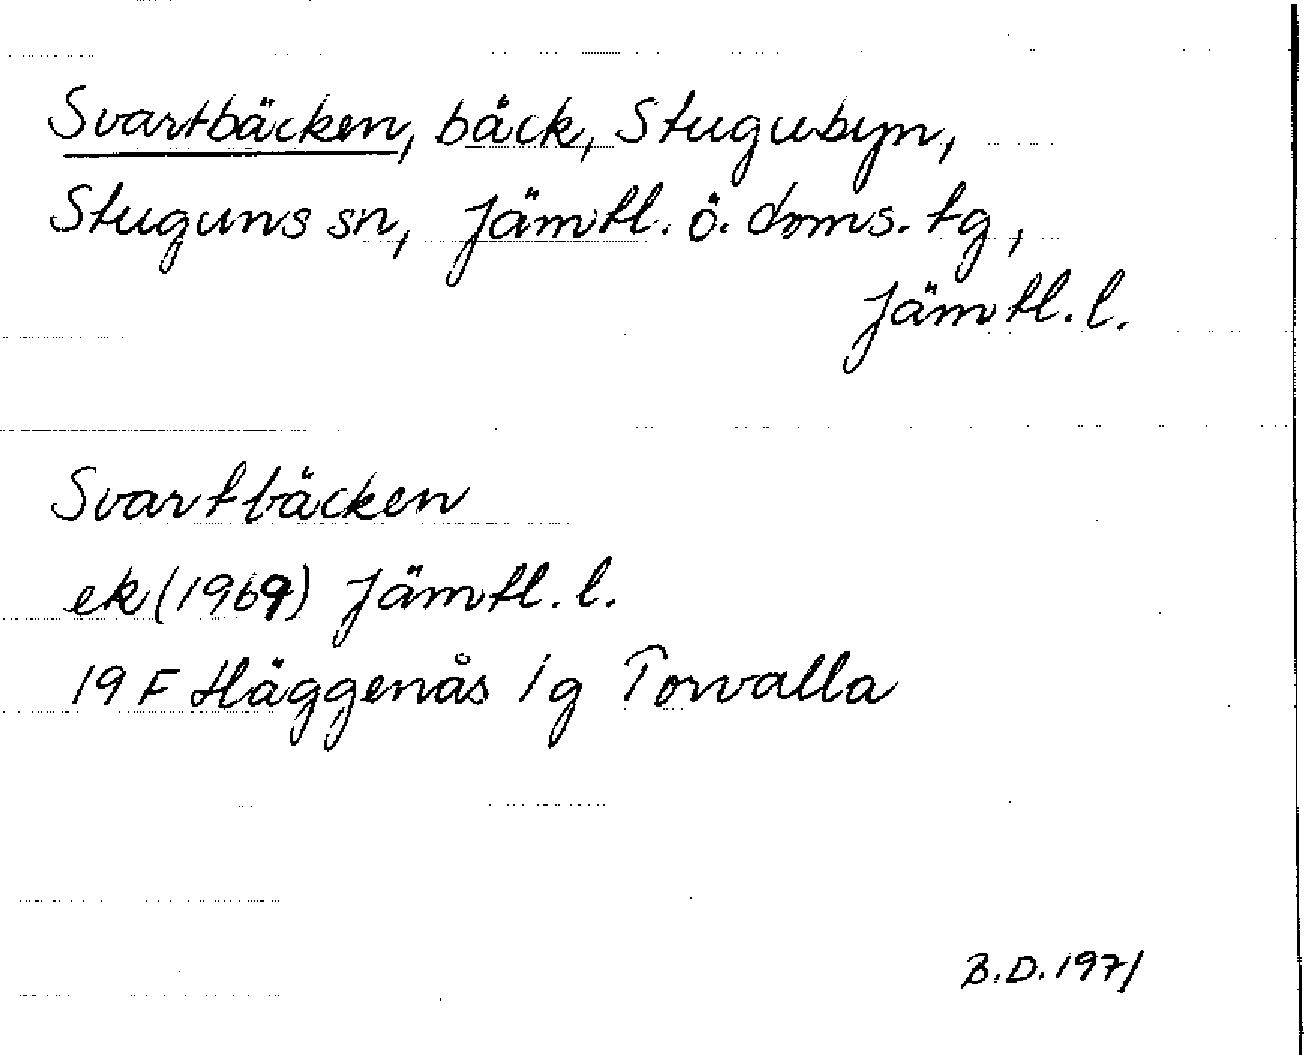 Svartbäcken, bäck, Stugubyn,
Stuguns sn, Jämtl. ö. doms. tg,
Jämtl. l.
Svartbäcken
ek (1969) Jämtl. l.
19 F Häggenås 1g Torvalla
B.D. 1971